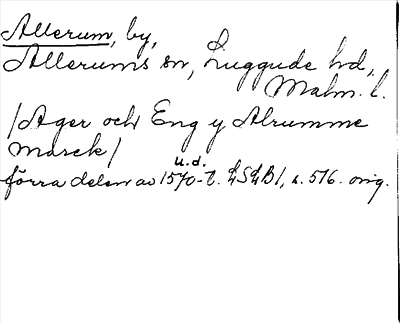 Allerum, by,
Allerums sn, Luggude hd,
Malm. l.
/Ager och Eng y Alrumme
marck/
u.d.
förra delen av 1570-t. LSLB1, s. 516. orig.